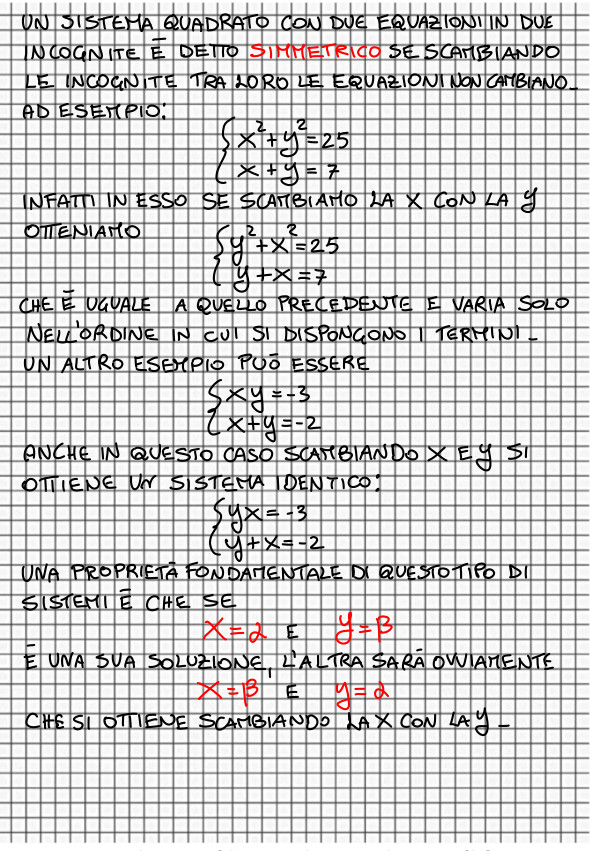 UN SISTEMA QUADRATO CON DUE EQUAZIONI IN DUE
INCOGNITE Ē DETTO SIMMETRICO SE SCAMBIANDO
LE INCOGNITE TRA LORO LE EQUAZIONI NON CAMBIANO_
AD ESEMPIO:
{ x²+y²=25
x+y=7
INFATTI IN ESSO SE SCAMBIAMO LA X CON LA y
OTTENIAMO
{ y²+x²=25
y+x=7
CHE Ē UGUALE A QUELLO PRECEDENTE E VARIA SOLO
NELL'ORDINE IN CUI SI DISPONGONO I TERMINI_
UN ALTRO ESEMPIO PUŌ ESSERE
{ xy=-3
x+y=-2
ANCHE IN QUESTO CASO SCAMBIANDO X E y SI
OTTIENE UN SISTEMA IDENTICO:
{ yx=-3
y+x=-2
UNA PROPRIETĀ FONDAMENTALE DI QUESTO TIPO DI
SISTEMI Ē CHE SE
X=α E y=β
Ē UNA SUA SOLUZIONE, L'ALTRA SARĀ OVVIAMENTE
X=β E y=α
CHE SI OTTIENE SCAMBIANDO LA X CON LA y_